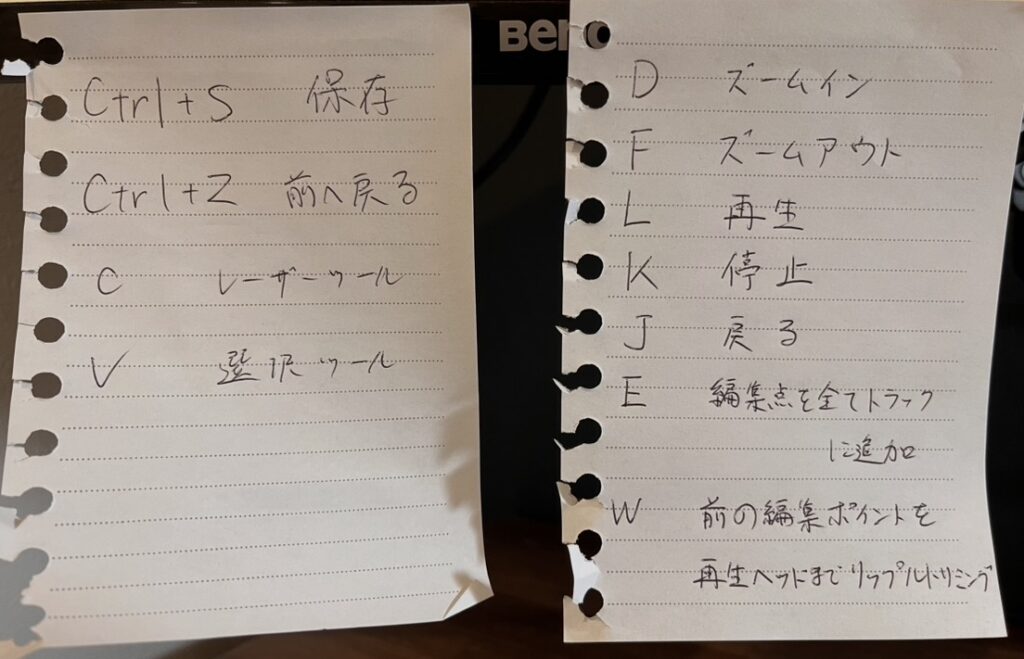 Ctrl+S 保存
Ctrl+Z 前へ戻る
C レーザーツール
V 選択ツール
BenQ
D ズームイン
F ズームアウト
L 再生
K 停止
J 戻る
E 編集点を全てトラック
に追加
W 前の編集ポイントを
再生ヘッドまでリップルトリミング